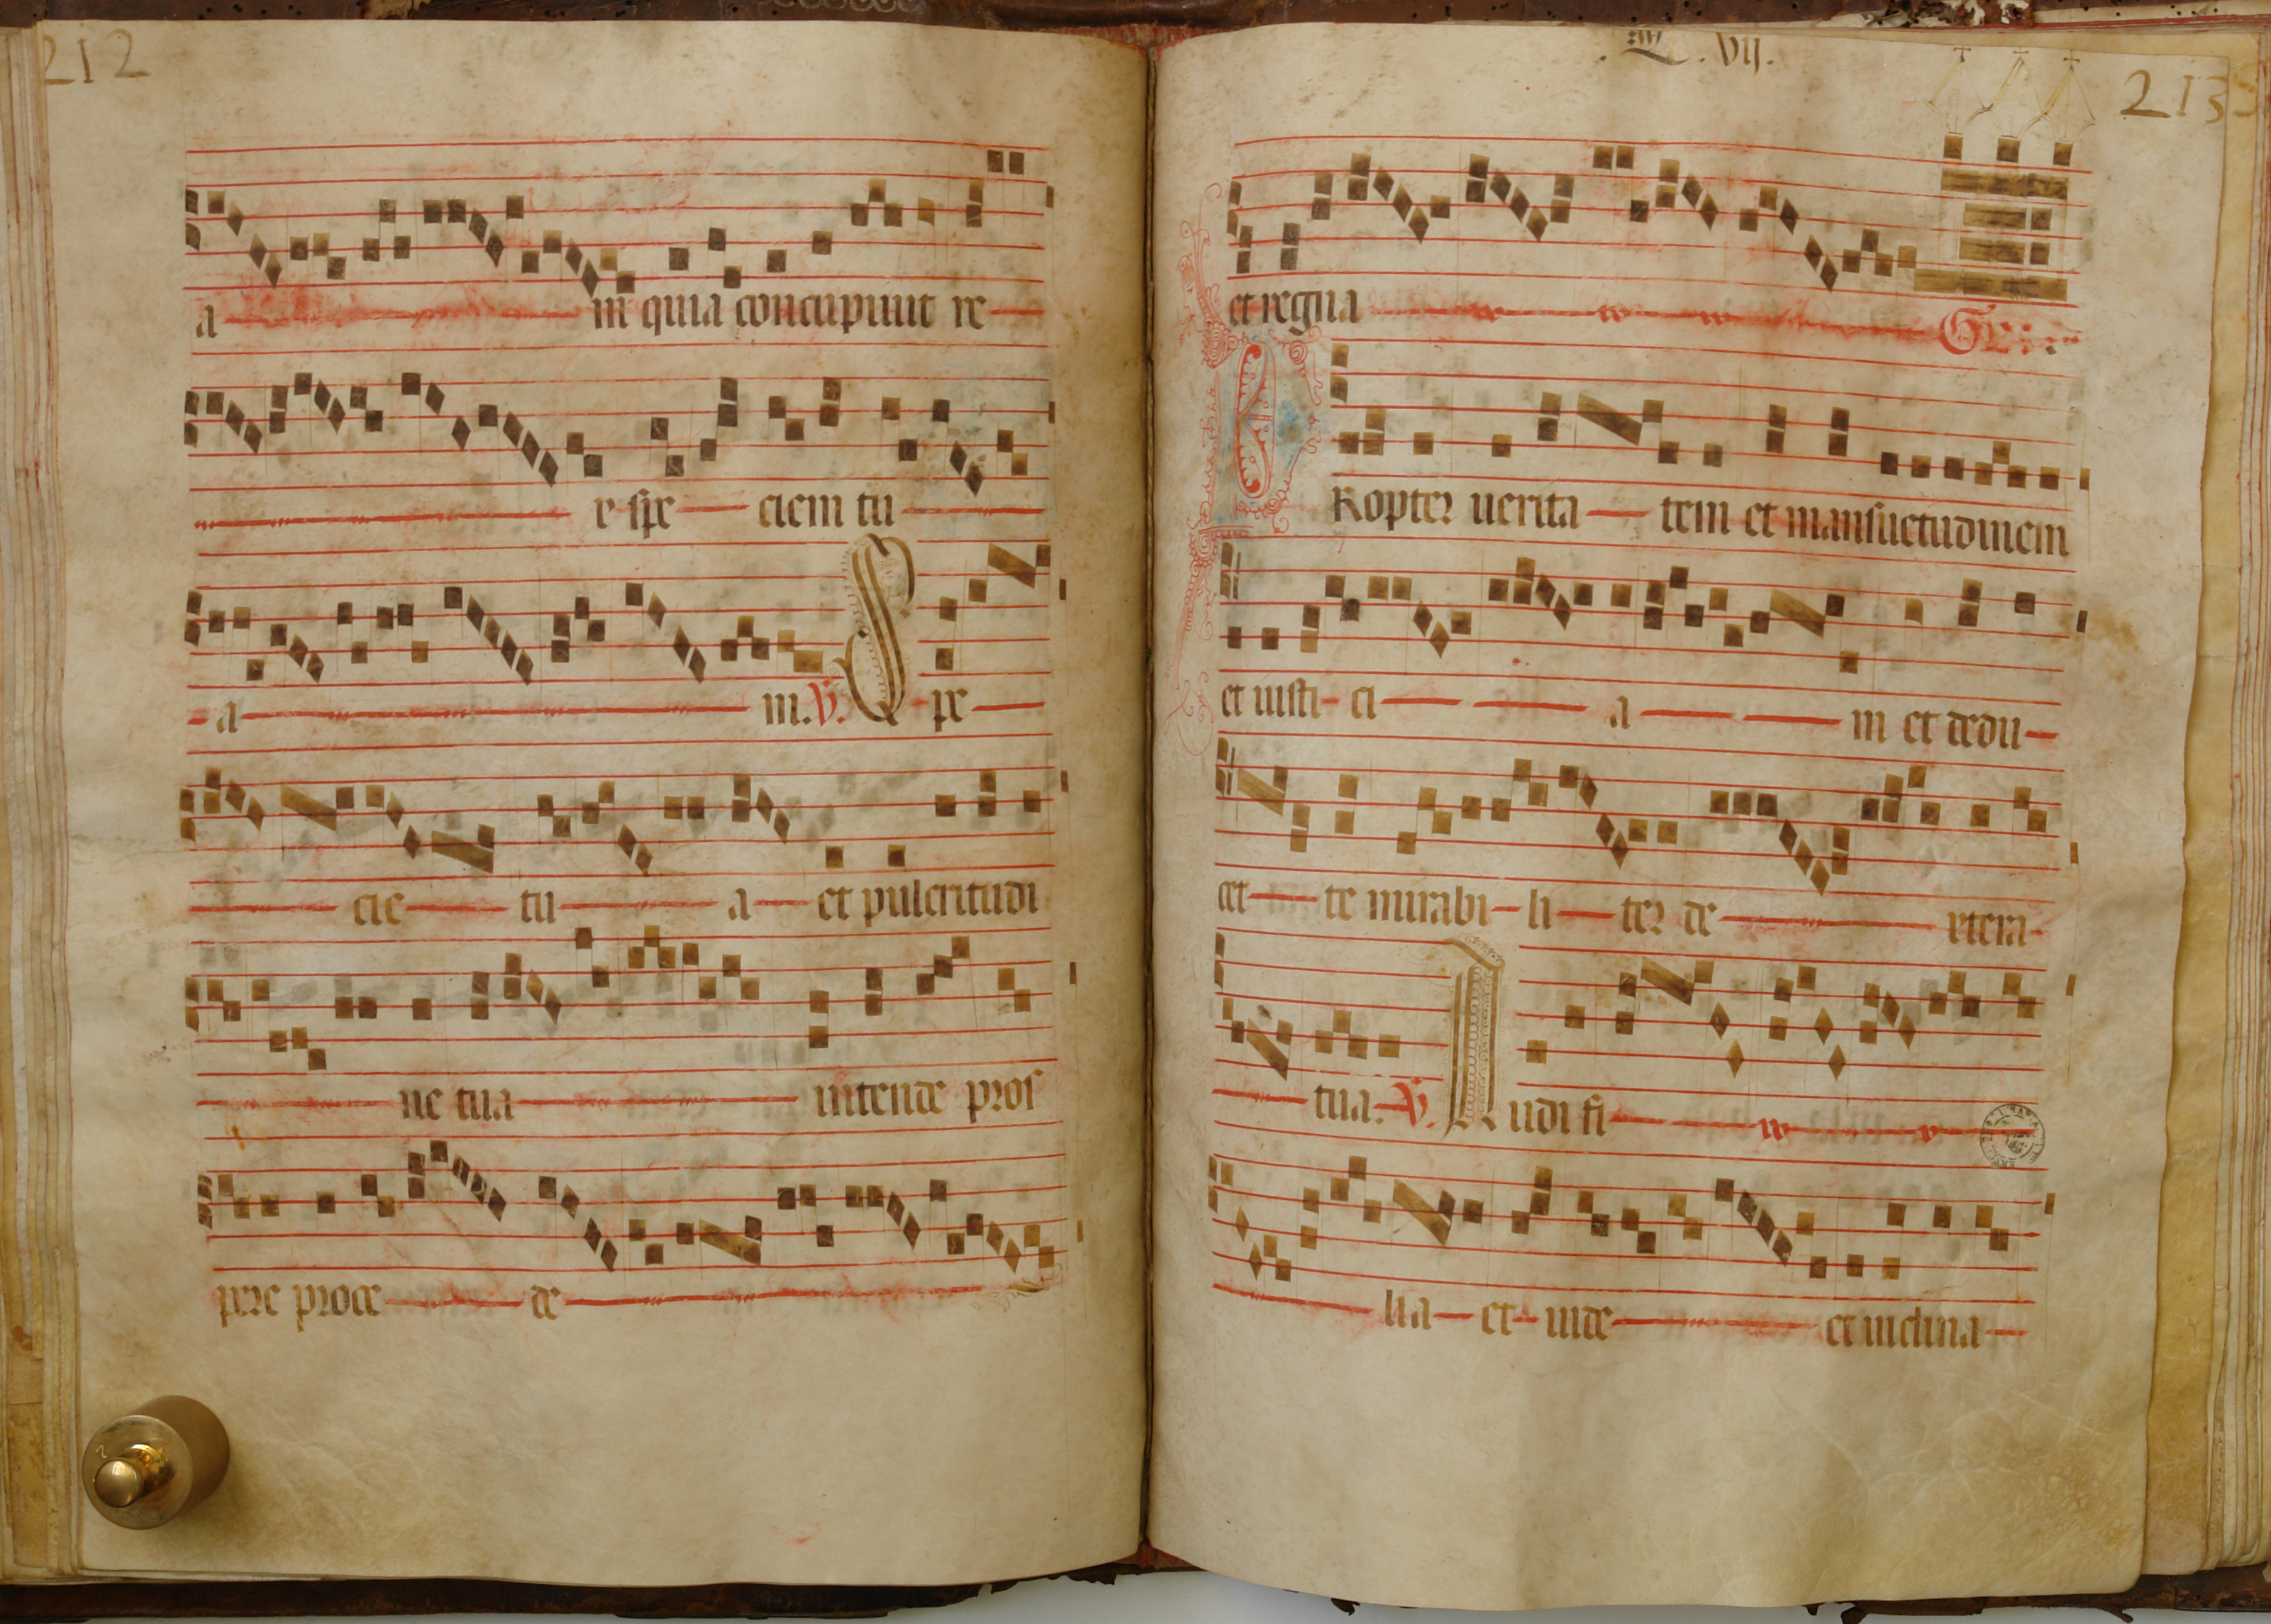 212
a m quia concupiuit re
x spe ciem tu
a m. V. Spe
cie tu a et pulcritudi
ne tua intende pros
pere proce de
VII.
213
et regna Gr.
PRopter uerita tem et mansuetudinem
et iusti ci a m et dedu
cet te mirabi li ter de xtera
tua. V. Audi fi
lia et uide et inclina